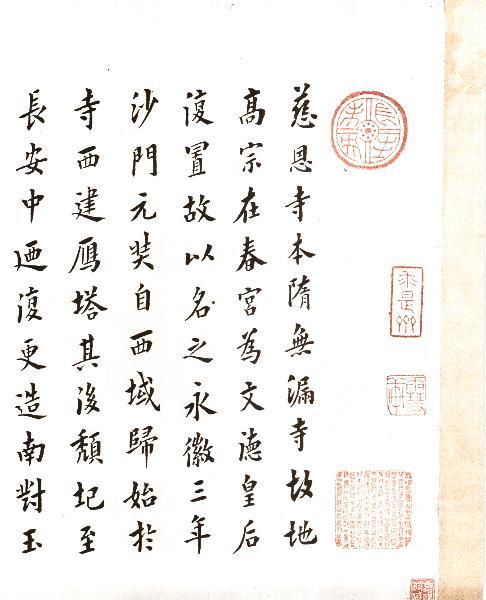 慈恩寺本隋無漏寺故地
高宗在春宮為文德皇后
復置故以名之永徽三年
沙門元奘自西域歸始於
寺西建鴈塔其後頹圮至
長安中迺復更造南對玉